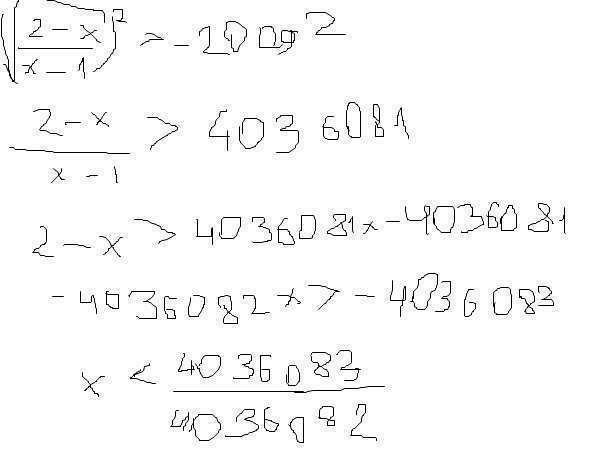 (√((2-x)/(x-1)))² > -2009²
(2-x)/(x-1) > 4036081
2-x > 4036081x-4036081
-4036082x > -4036083
x < 4036083/4036082